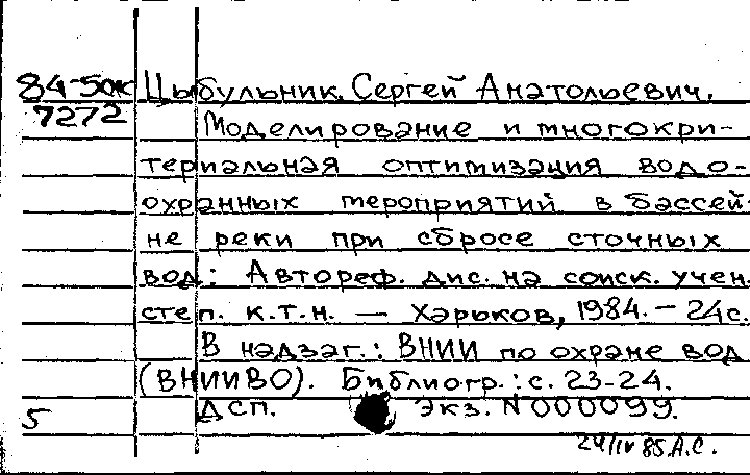 84-5ок Цыбульник, Сергей Анатольевич.
7272
Моделирование и многокри-
териальная оптимизация водо-
охранных мероприятий в бассей-
не реки при сбросе сточных
вод: Автореф. дис. на соиск. учен.
степ. к.т.н. — Харьков, 1984. – 24с.
В надзаг.: ВНИИ по охране вод
(ВНИИВО). Библиогр.: с. 23-24.
5 ДСП. Экз. N 000099.
24/IV 85 А.С.